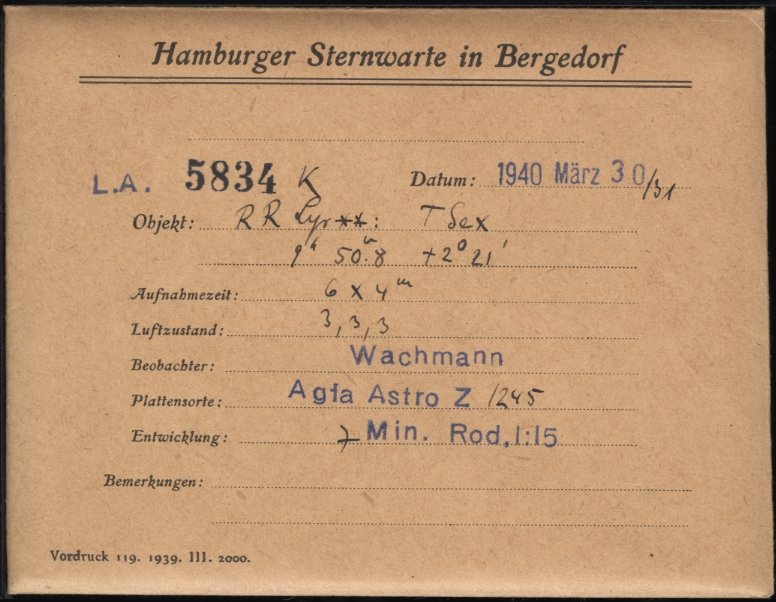 Hamburger Sternwarte in Bergedorf
L.A. 5834 K Datum: 1940 März 30/31
Objekt: RR Lyr**: T Sex
9h 50m.8 +2° 21'
Aufnahmezeit: 6 x 4m
Luftzustand: 3, 3, 3
Beobachter: Wachmann
Plattensorte: Agfa Astro Z 1245
Entwicklung: 7 Min. Rod, 1:15
Bemerkungen:
Vordruck 119. 1939. III. 2000.